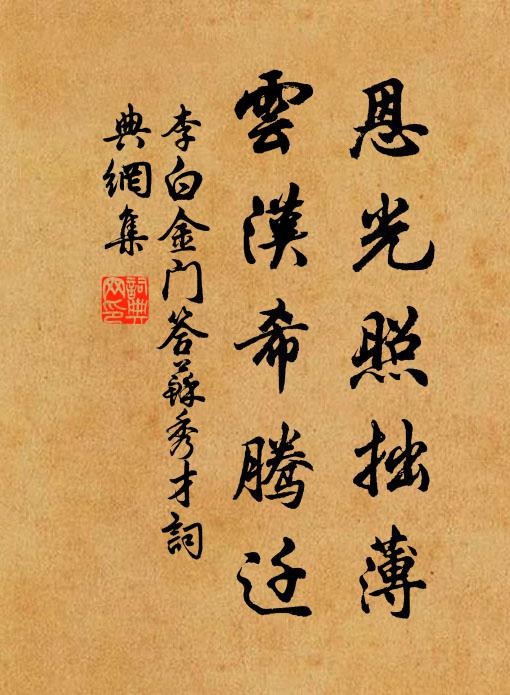 恩光照拙薄
雲漢希腾迁
李白金门答蘇秀才詞
典網集
詞典
网印